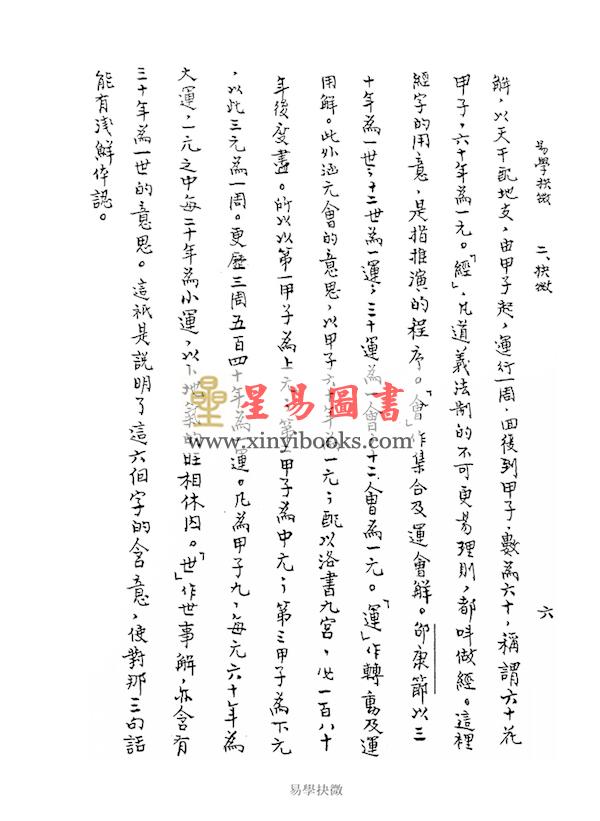 易學抉微　二、抉微　六
解，以天干配地支，由甲子起，運行一周，回復到甲子，數為六十，稱謂六十花
甲子，六十年為一元。「經」，凡道義法制的不可更易理則，都叫做經。這裡
經字的用意，是指推演的程序。「會」作集合及運會解。邵康節以三
十年為一世，十二世為一運，三十運為一會，十二會為一元。「運」作轉動及運
用解。此外涵元會的意思，以甲子六十年為一元，配以洛書九宮，必一百八十
年後度盡。所以以第一甲子為上元，第二甲子為中元，第三甲子為下元
，以此三元為一周。更歷三周五百四十年為一運。凡為甲子九，每元六十年為
大運，一元之中每二十年為小運，以卜地氣的旺相休囚。「世」作世事解，亦含有
三十年為一世的意思。這祇是說明了這六個字的含意，使對那三句話
能有淺鮮体認。
星易圖書
www.xinyibooks.com
易學抉微